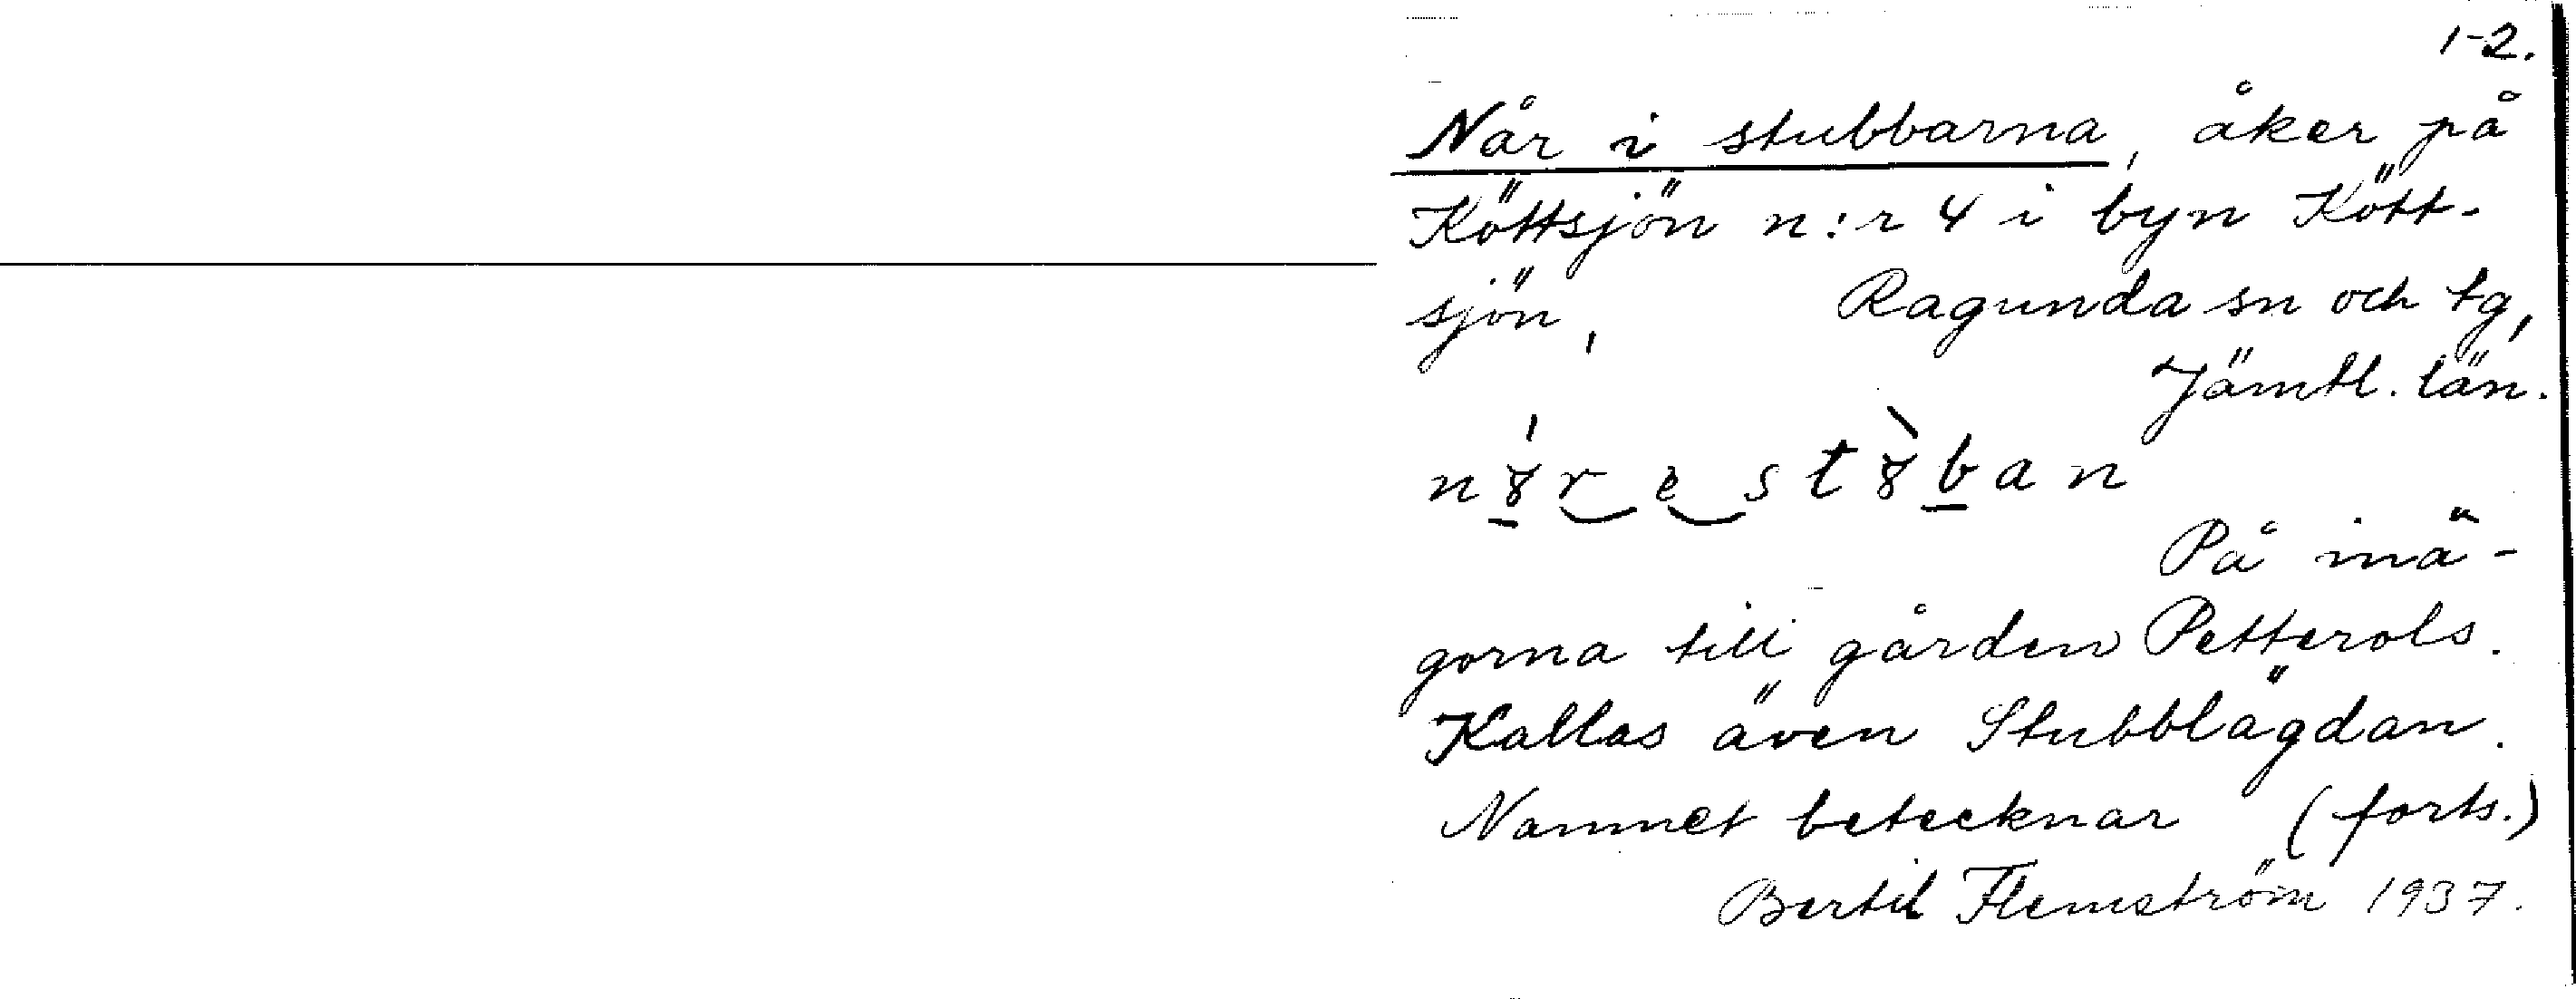 1-2.
Når i stubbarna, åker på
Köttsjön n:r 4 i byn Kött-
sjön, Ragunda sn och tg,
Jämtl. län.
På inä-
gorna till gården Petterols.
Kallas även Stubblägdan.
Namnet betecknar (forts.)
Bertil Flemström 1937.